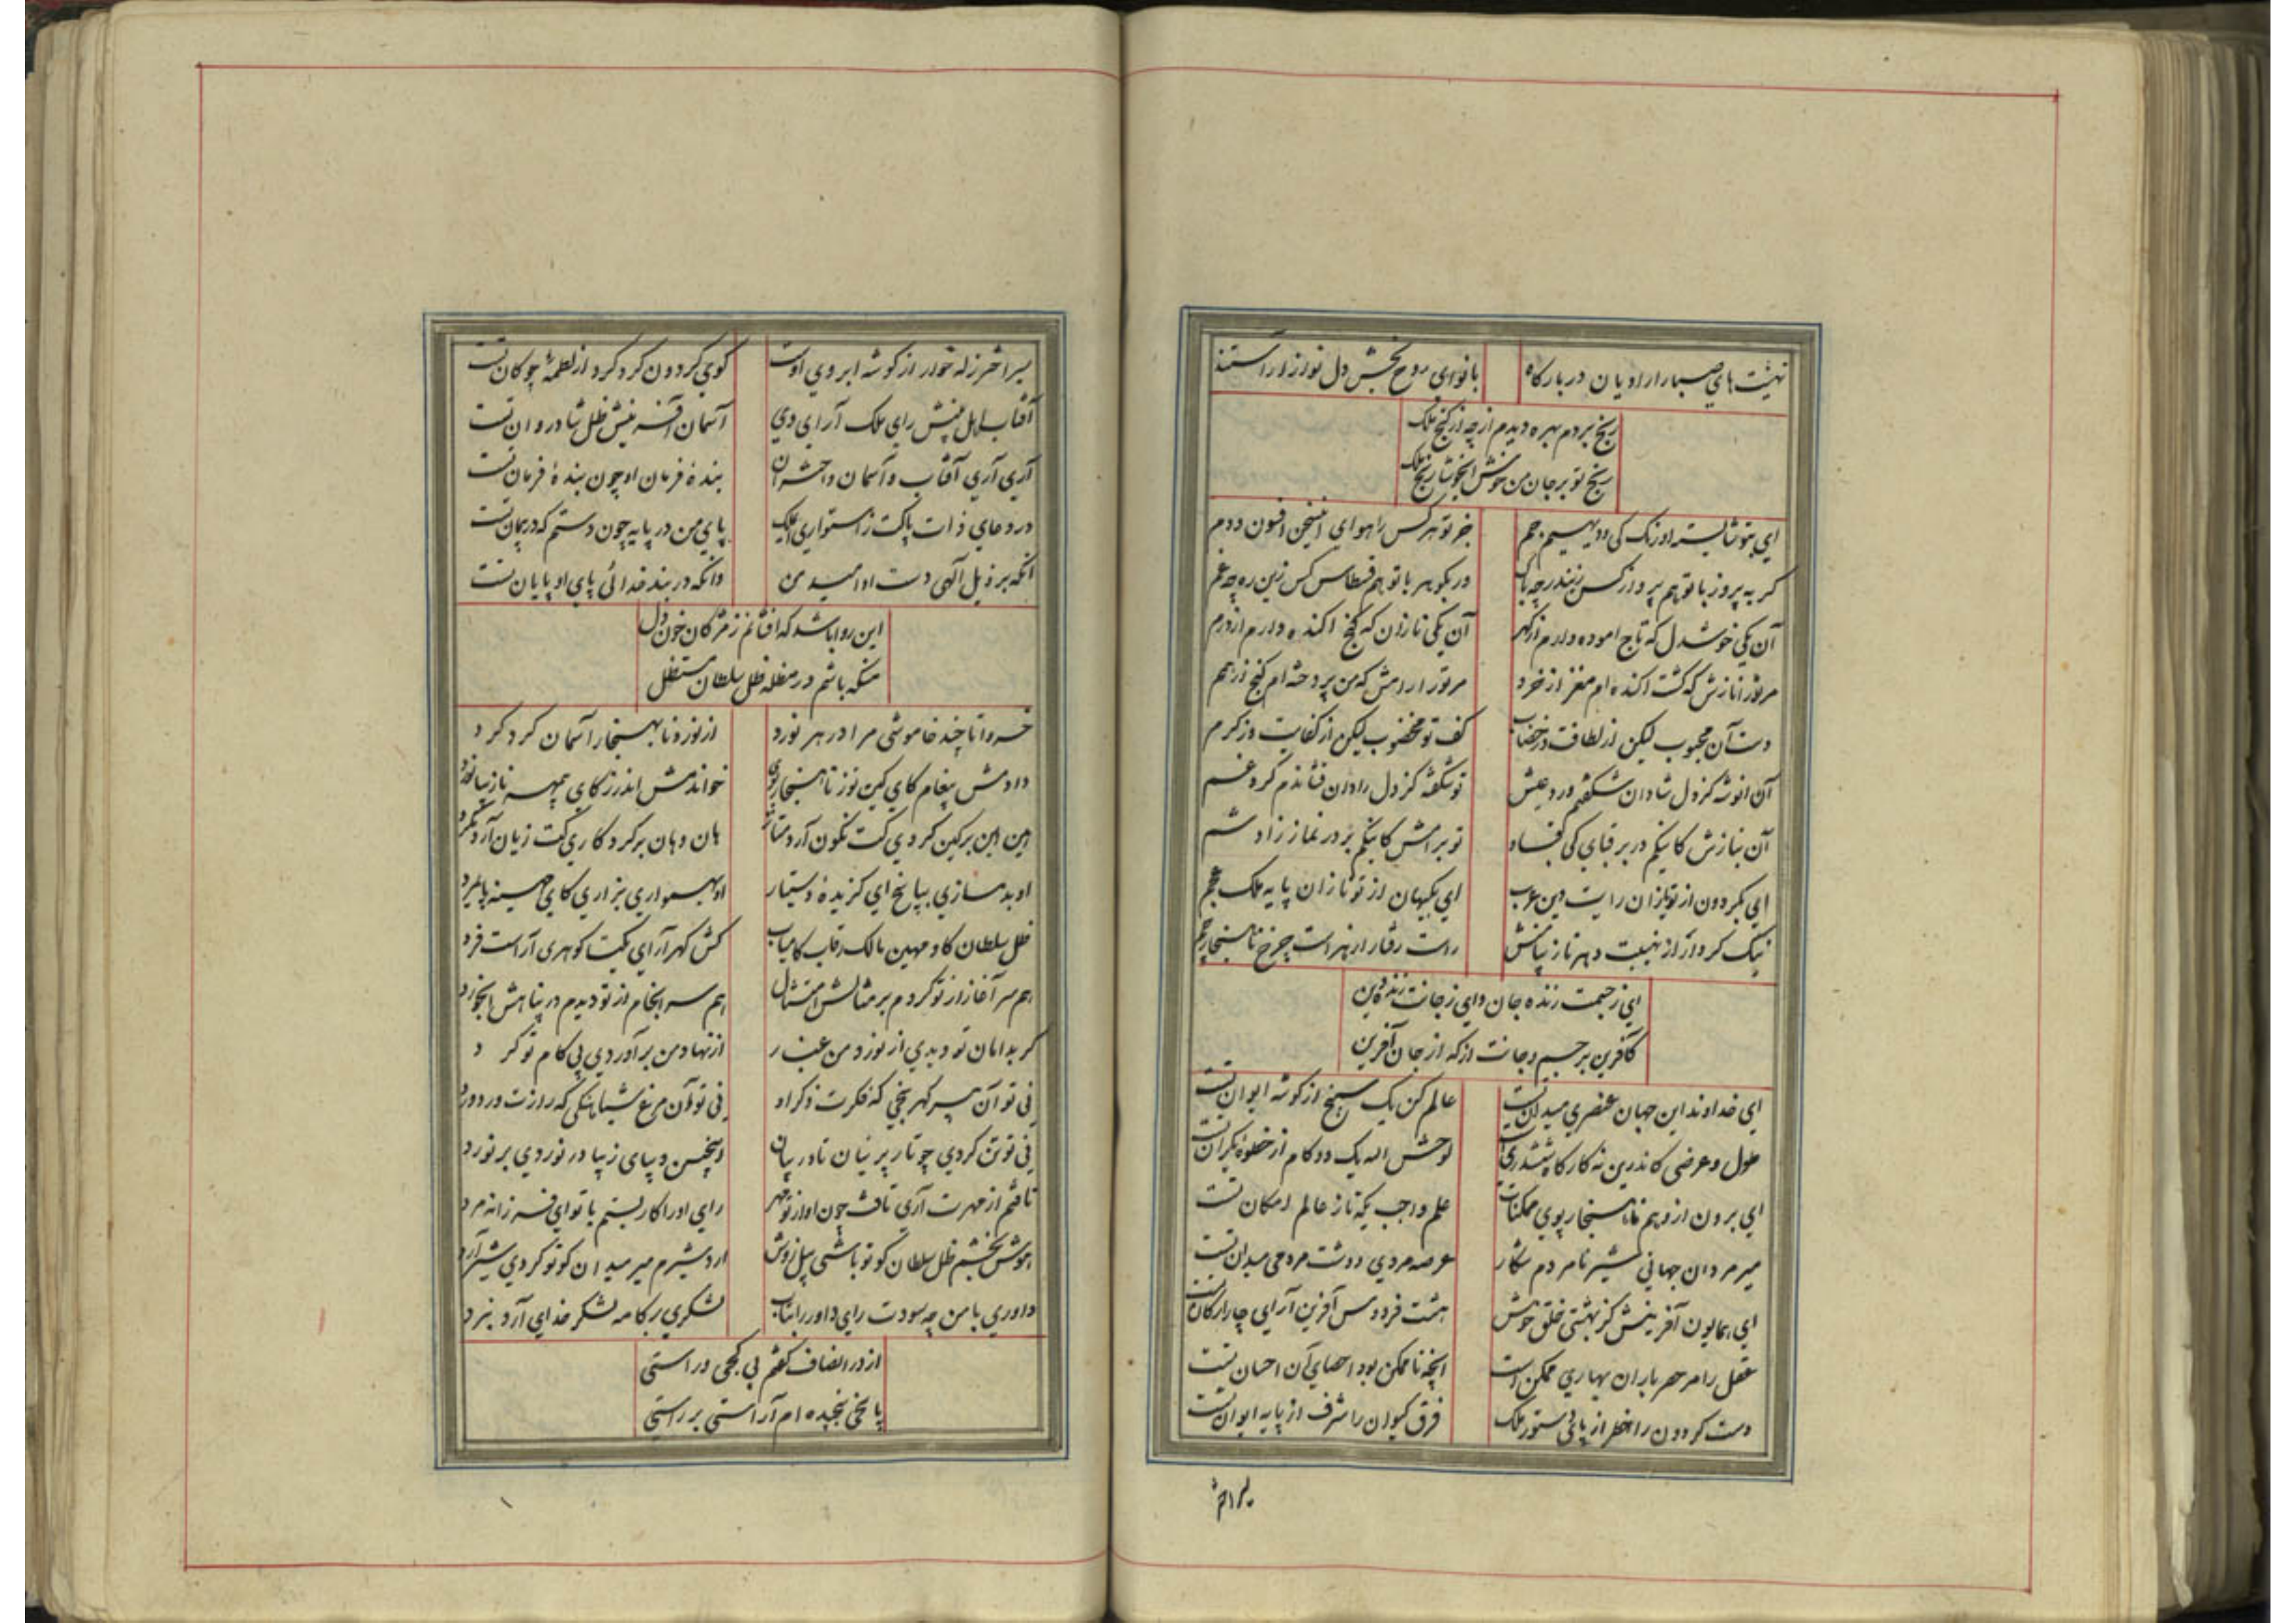 تهنیت های صبا را راویان در بارگاه با نوای روح بخش دل نواز آراستند
رنج بردم بهره دیدم از چه از گنج ملک
رنج تو بر جان من خوش ای خوشا رنج ملک
ای بتو شایسته اورنگ کی و دیهیم جم جز تو هر کس را هوای این سخن افسون و دم
گر به پرویز با تو هم پرواز کس نبندد چه باک ور بگوهر با تو هم قسطاس کس زین ره چه غم
آن یکی خوشدل که تاج آموده دارم از گهر آن یکی نازان که گنج آکنده دارم از درم
مر تو را نازش که گشت آکنده ام مغز از خرد مر تو را رامش که من پردخته ام گنج از درم
دست آن محبوب لیکن از لطافت در خضاب کف تو مخضوب لیکن از کفایت وز کرم
آن انوشه کز دل شادان شکفتم ورد عیش تو شکفته کز دل رادان فشاندم گرد غم
آن بنازش کاینکم در بر قبای کی قباد تو برامش کاینکم بر در نماز زادشم
ای بگردون از تو یازان رایت دین عرب ای بگیهان از تو نازان پایه ملک عجم
نیک کردار از نهیبت دهر ناز پیانش راست رفتار از نهراست چرخ ناهنجار چم
ای ز جسمت زنده جان و ای ز جانت زنده دین
کافرین بر جسم و جانت از که از جان آفرین
ای خداوند این جهان عنصری میدان تست عالم کن یک سپنج از گوشه ایوان تست
طول و عرضی کاندرین نه کارگاه ششدری لوحش الله یک دو کام از خطوه یکران تست
ای برون از وهم ناهنجار پوی ممکنات علم واجب یکه تاز عالم امکان تست
میر مردان جهانی شیر نامردم شکار عرصه مردی و دشت مردمی میدان تست
ای همایون آفرینش کز بهشتی خلق خوش هشت فردوس آفرین آرای چار ارکان تست
عقل را مر حصر باران بهاری ممکن است آنچه ناممکن بود احصای آن احسان تست
دست گردون را خطر از پای دستور ملک فرق کیوان را شرف از پایه ایوان تست
میراختر
میر اختر زله خوار از گوشه ابروی اوست گوی گردون گرد گرد از لطمه چوگان تست
آفتاب اهل بینش رای ملک آرای وی آسمان آفرینش ظل شادروان تست
آری آری آفتاب و آسمان و اختران بنده فرمان او چون بنده فرمان تست
در دعای ذات پاکت ز استواری ای ملک پای من در پایه چون دستم که در پیمان تست
آنکه بر ذیل الهی دست او امید من وانکه در بند خدائی پای او پایان تست
این روا باشد که افشانم ز مژگان خون دل
منکه باشم در مظله ظل سلطان مستظل
خسروا تا چند خاموشی مرا در هر نورد از نوزد ناهنجار آسمان گرد گرد
دادمش پیغام کای کین توز ناهنجار پوی خواندمش اندرز کای بیمهر ناز
این این بر کین کردی کت نگون آرد هان و هان برگرد کاری کت زیان آرد مگرد
او بدمسازی بپاسخ ای گزیده دستیار او بهمواری بزاری کای
ظل سلطان کاو مهین مالک رقاب کامیاب کش گهر آرای یکتا گوهری آراست فرد
هم سر آغاز از تو کردم بر مثالش امتثال هم سرانجام از تو دیدم در پناهش
گر بدامان تو دیدی از نوزد من غبار از نهاد من برآوردی پی کام تو گرد
نی تو آن سر گهر بخی که فکرت ذکر او نی تو آن مرغ شباهنگی که رازت ورد ورد
نی تو تن کردی چو تار پرنیان تا در بیان اینچنین دیبای زیبا در نوردی بر نورد
تافتم از مهرت آری تافت چون او از تو مهر رای او را کار بستم با تو ای فرزانه مرد
هوش بخشم ظل سلطان کو تو باشی پیل زوش اردشیرم میر میدان کو تو کردی شیر آرد
داوری با من چه سودت رای داور را بتاب لشکری بر کامه لشکر خدای آرد نبرد
از در انصاف گفتم بی کجی در راستی
پاسخی سنجیده ام آراستی بر راستی